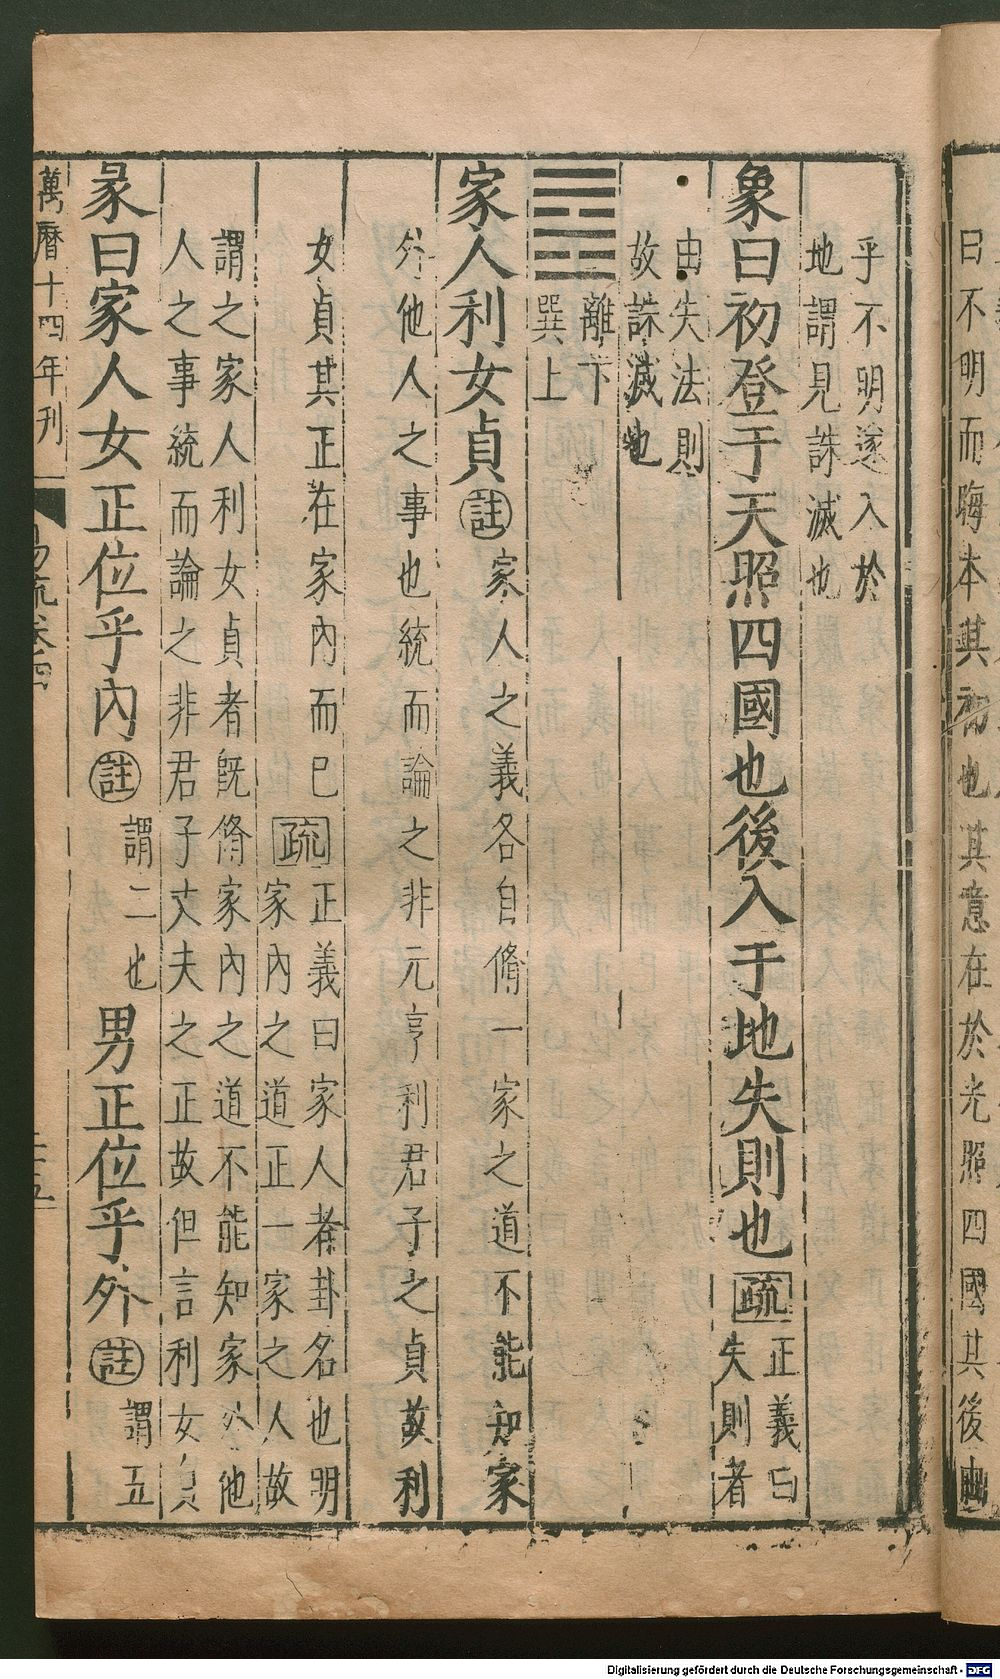 曰不明而晦本其初也其意在於光照四國其後由
乎不明遂入於
地謂見誅滅也
象曰初登于天照四國也後入于地失則也疏正義曰
失則者
由失法則
故誅滅也
離下
巽上
家人利女貞註家人之義各自脩一家之道不能知家
外他人之事也統而論之非元亨利君子之貞故利
女貞其正在家內而已疏正義曰家人者卦名也明
家內之道正一家之人故
謂之家人利女貞者旣脩家內之道不能知家外他
人之事統而論之非君子丈夫之正故但言利女貞
彖曰家人女正位乎內註謂二也男正位乎外註謂五
萬曆十四年刊
易疏卷四
Digitalisierung gefördert durch die Deutsche Forschungsgemeinschaft - DFG